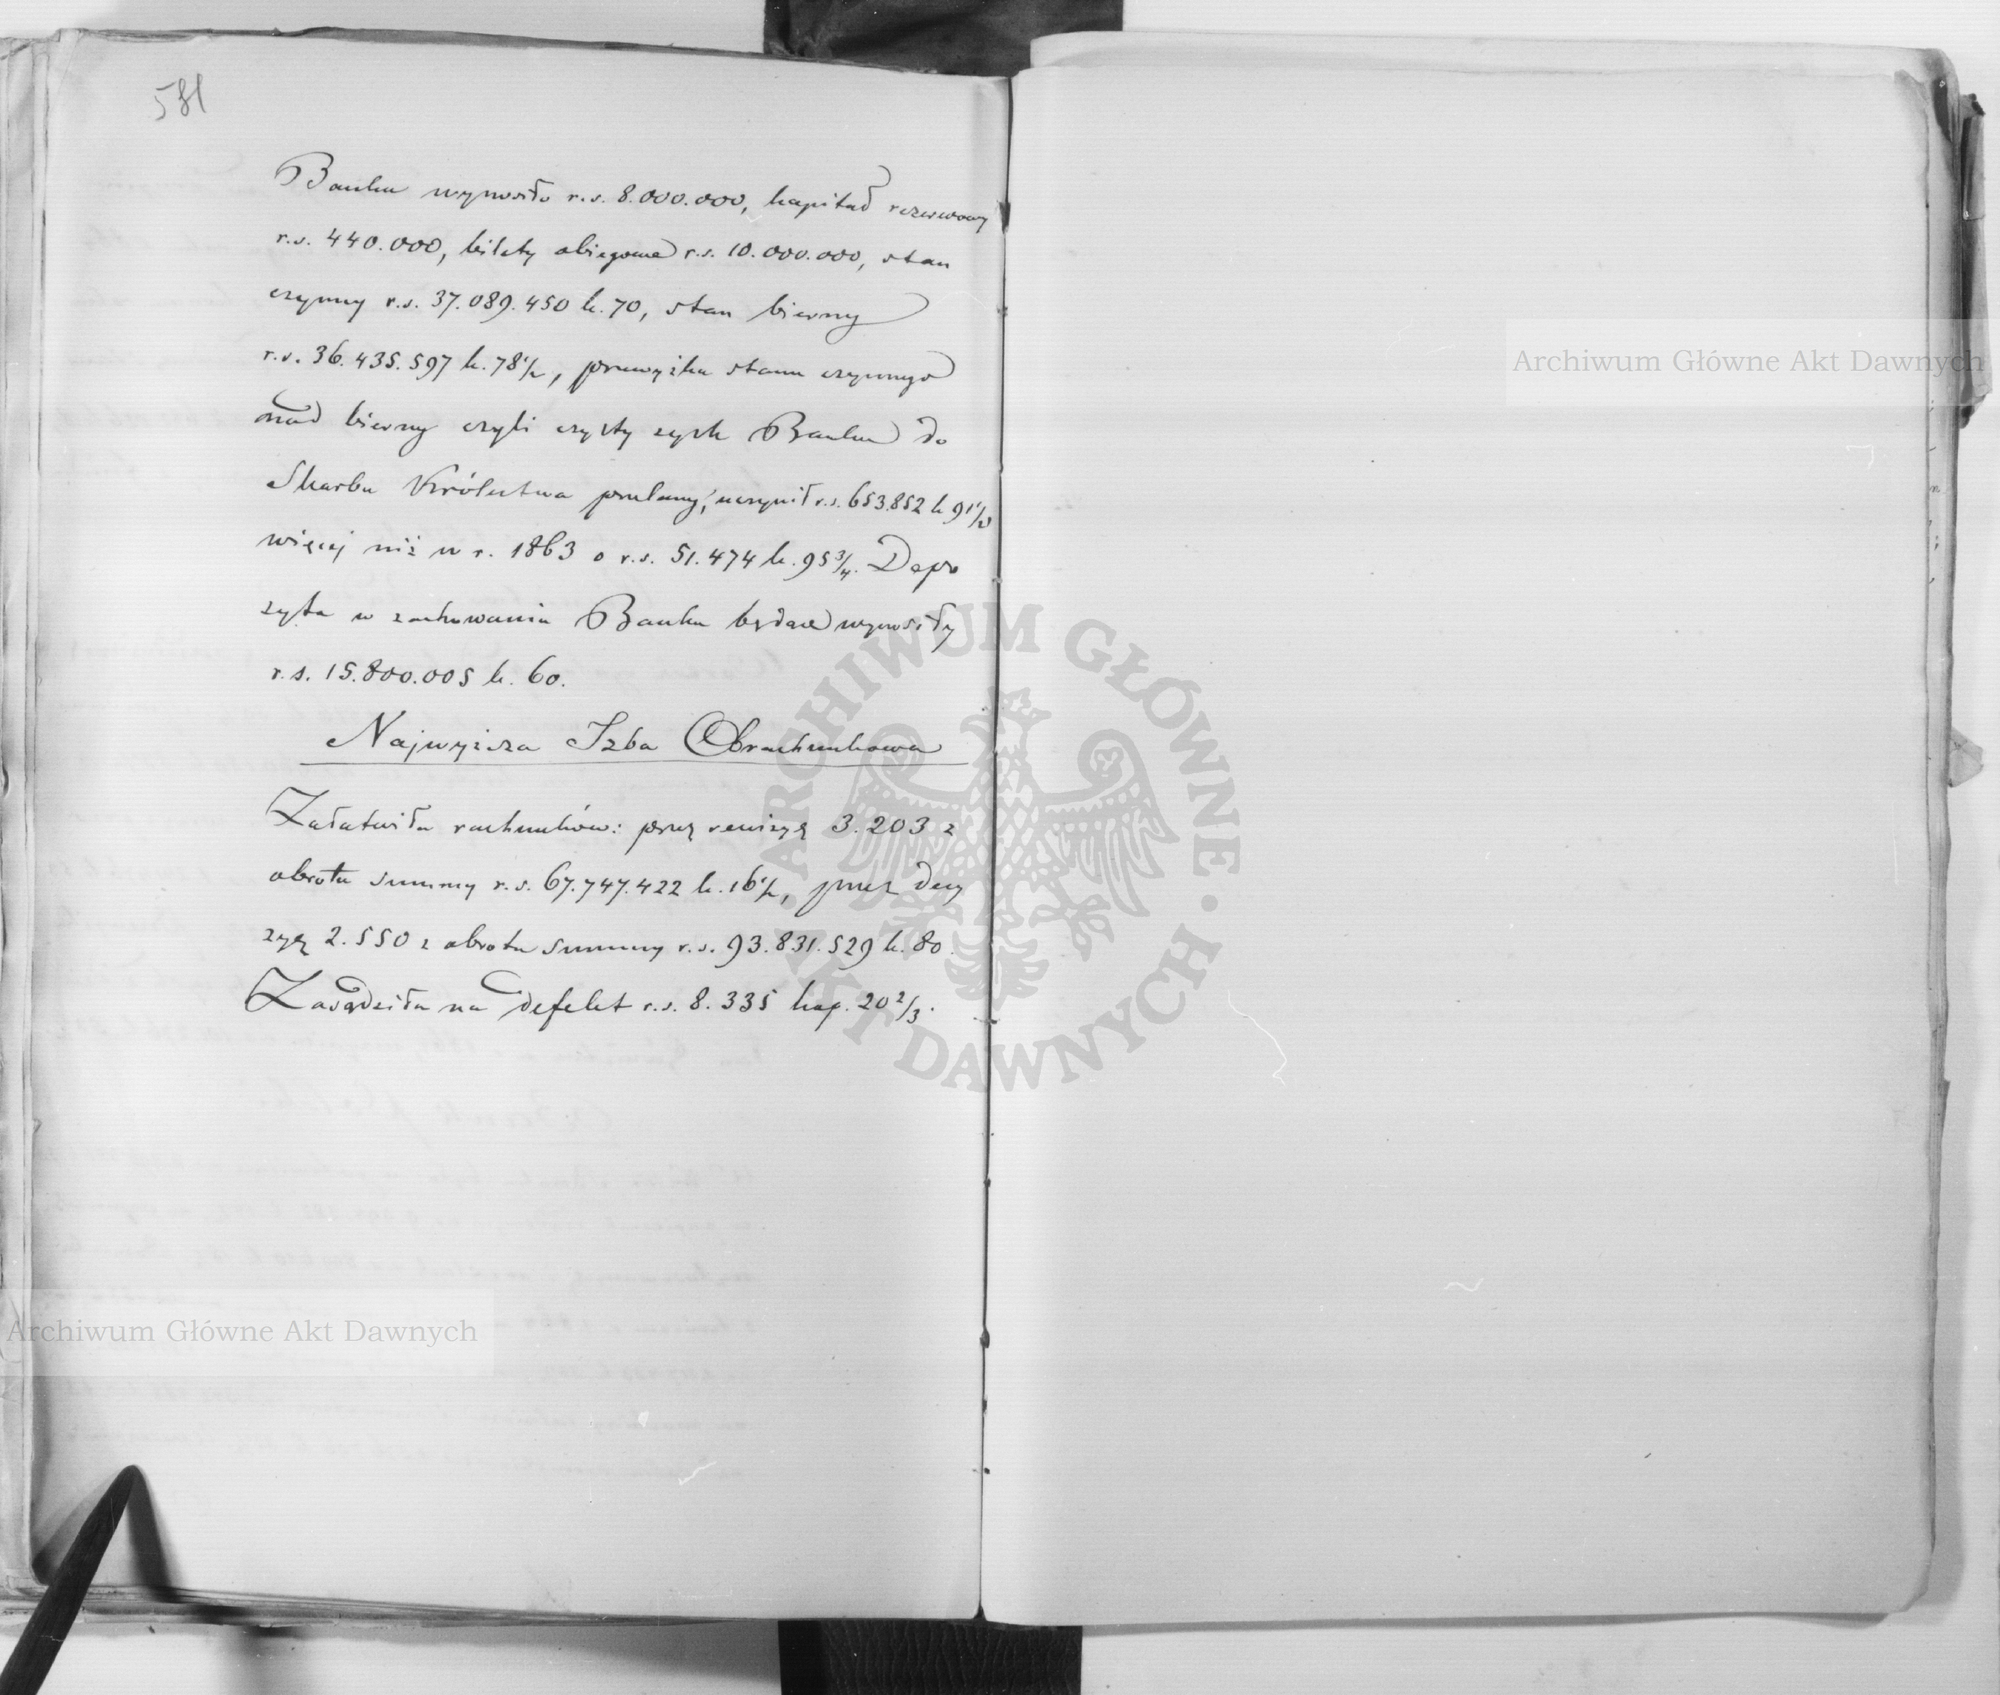 581
Banku wynosiło r.s. 8.000.000, kapitał rezerwowy
r.s. 440.000, bilety obiegowe r.s. 10.000.000, stan
czynny r.s. 37.089.450 k. 70, stan bierny
r.s. 36.435.597 k. 78½, przewyżka stanu czynnego
nad bierny czyli czysty zysk Banku do
Skarbu Królestwa przelany, uczynił r.s. 653.852 k 91½
więcej niż w r. 1863 o r.s. 51.474 k. 95¾. Depo
zyta w zachowaniu Banku będące wynosiły
r.s. 15.800.005 k. 60.
Najwyższa Izba Obrachunkowa
Załatwiła rachunków: przez rewizyę 3.203 z
obrotu summy r.s. 67.747.422 k. 16½, przez decy
zyę 2.550 z obrotu summy r.s. 93.831.529 k. 80.
Zasądziła na defekt r.s. 8.335 kop. 20 2/3.
Archiwum Główne Akt Dawnych
ARCHIWUM GŁÓWNE · AKT DAWNYCH ·
Archiwum Główne Akt Dawnych